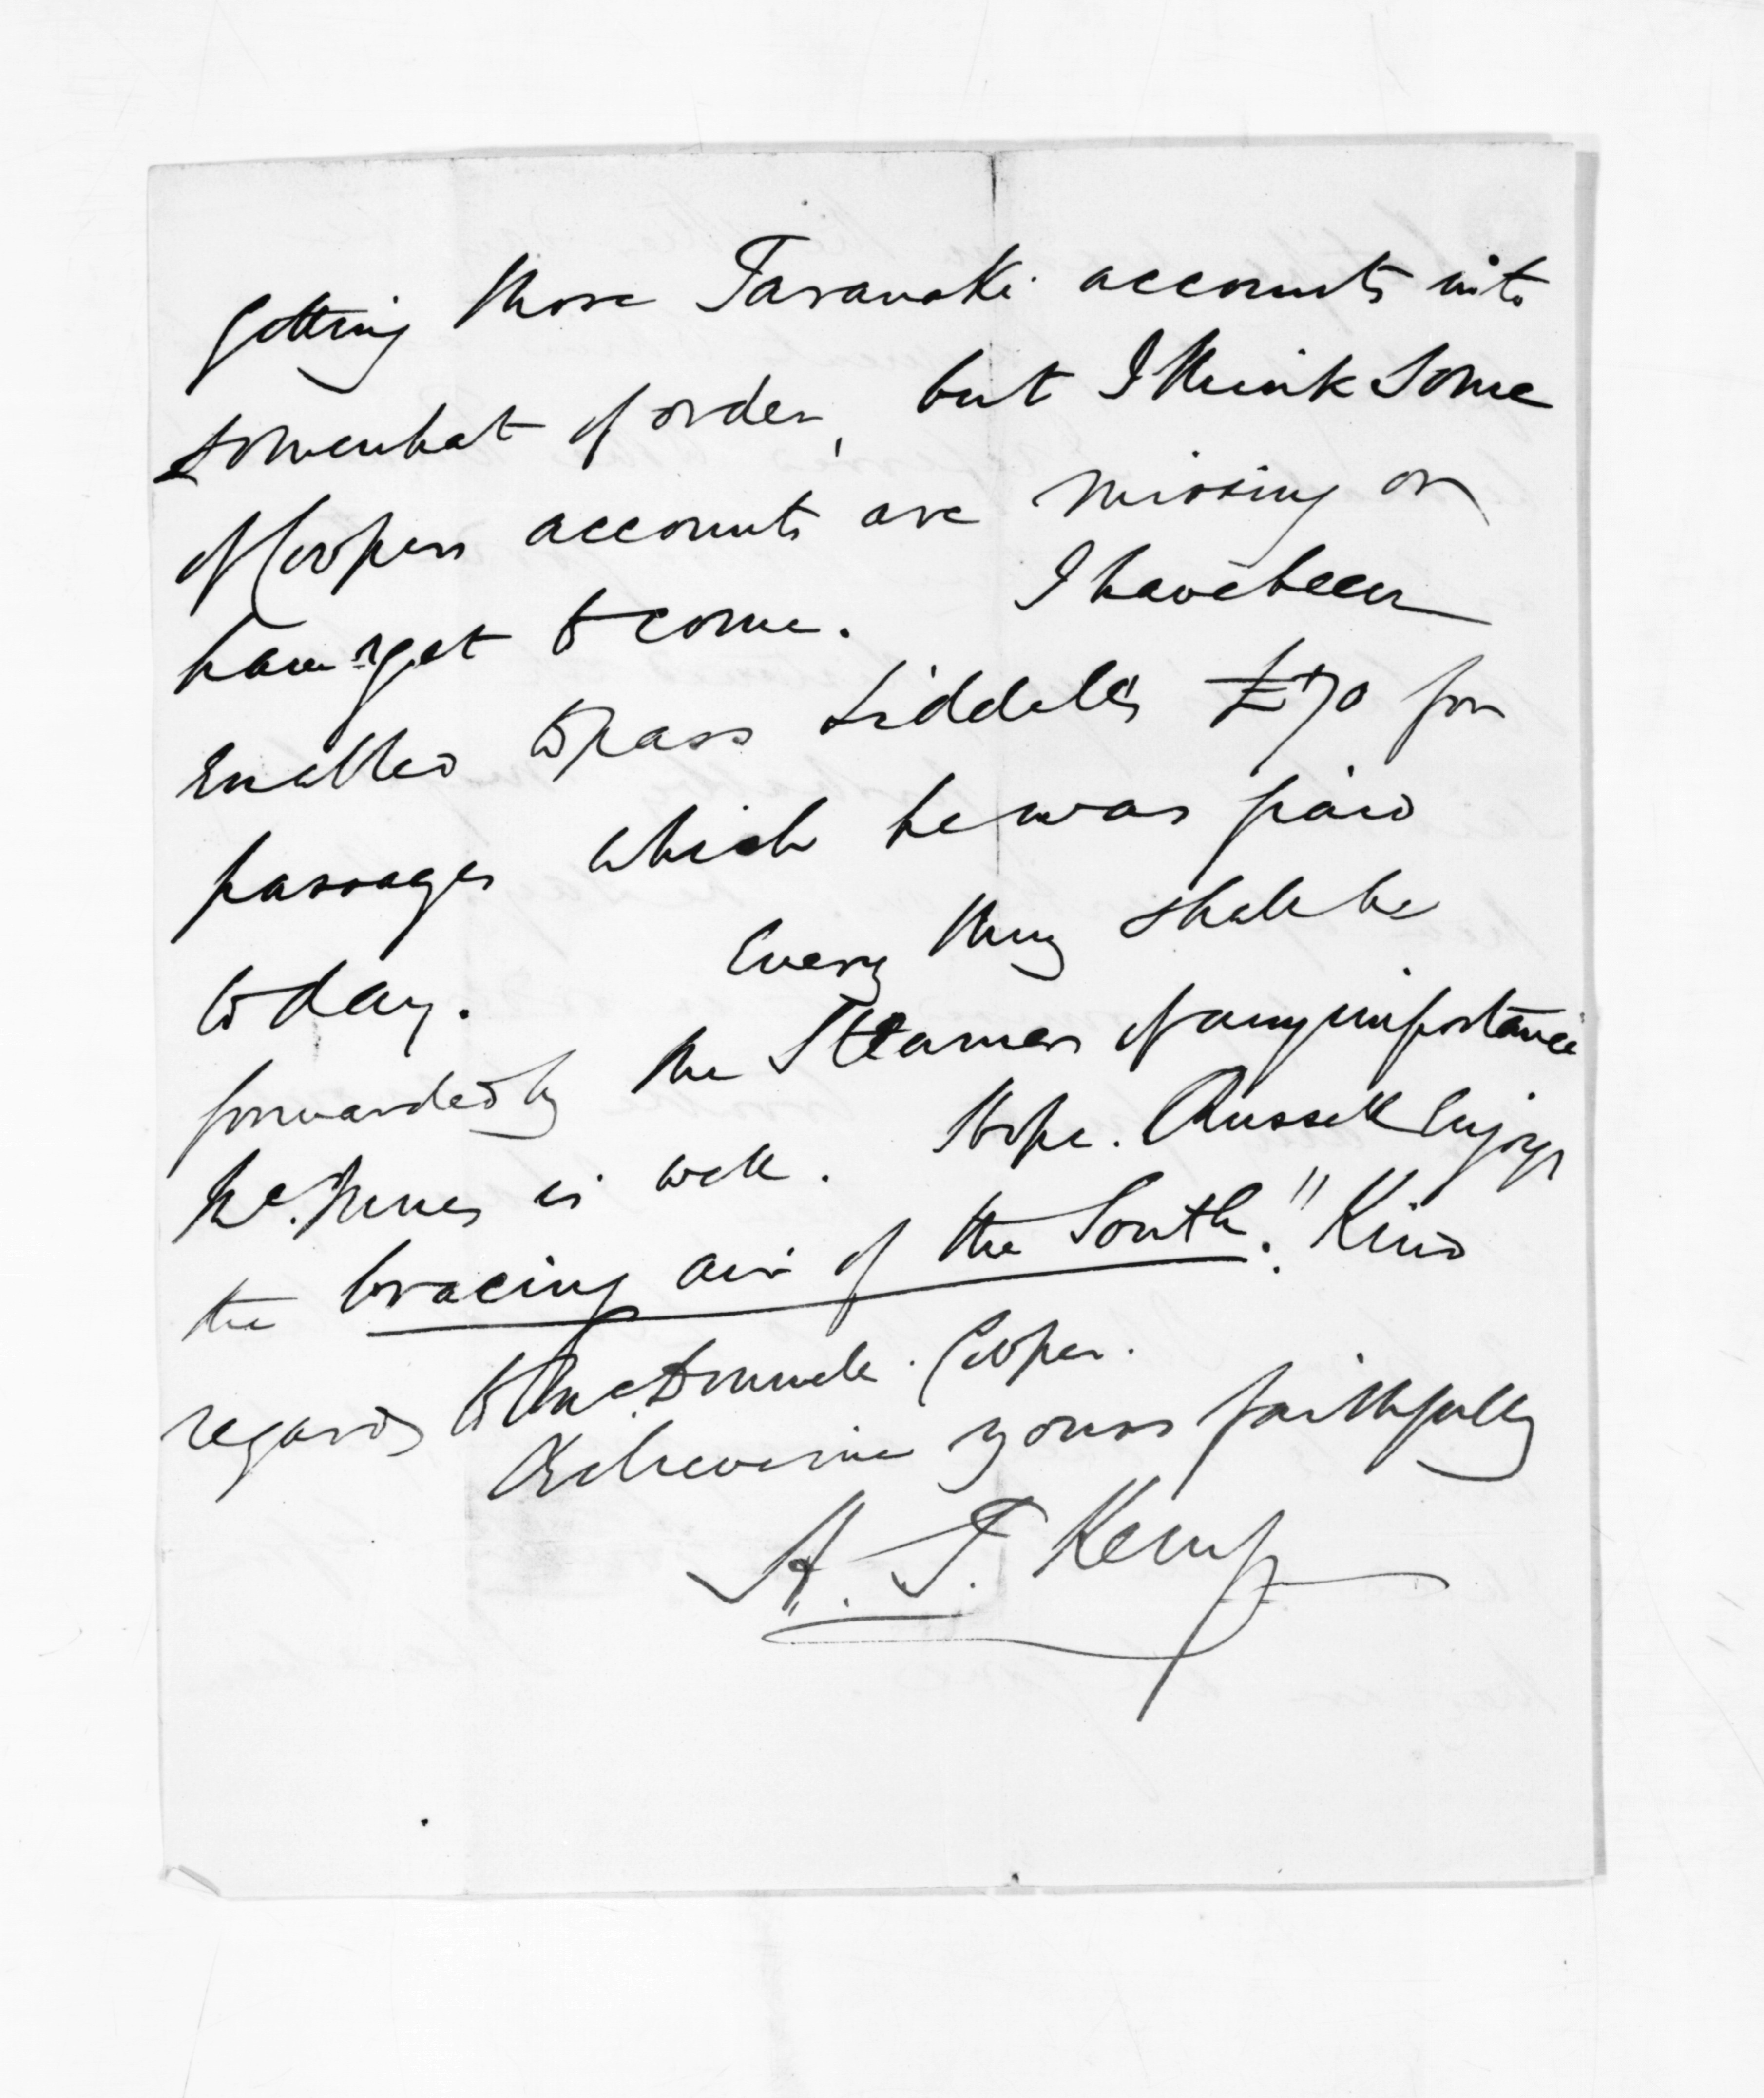 getting those Taranaki accounts into
somewhat of order, but I think some
of Coopers accounts are missing or
have yet to come. I have been
enabled to pass Liddell's £70 for
passages which he was paid
to day. Every thing shall be
forwarded by the Steamer of any importance
McInnes is well. Hope Russell enjoys
the bracing air of the South." Kind
regards to McDonnell. Cooper.
Believe me yours faithfully
H. T. Kemp